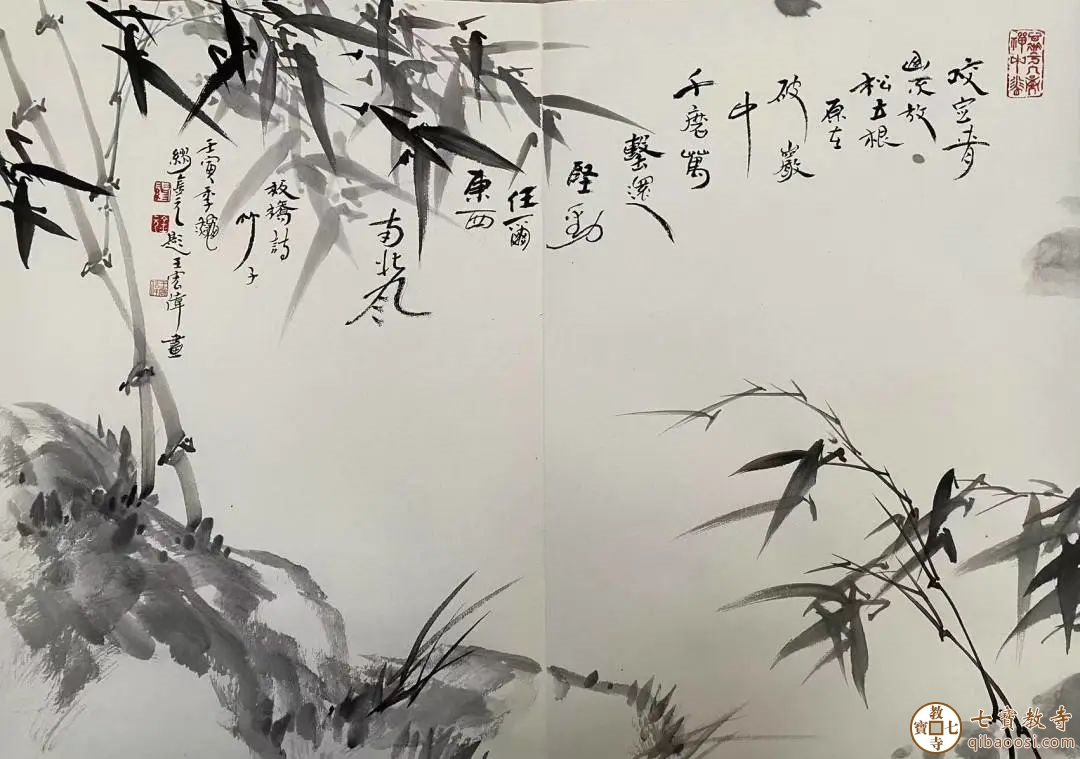 咬定青
山不放
松立根
原在
破巖
中
千磨萬
擊還
堅勁
任爾
東西
南北風
板橋詩
竹子
壬寅季龝
題王宏偉畫
七寶教寺
七寶教寺
qibaoosi.com